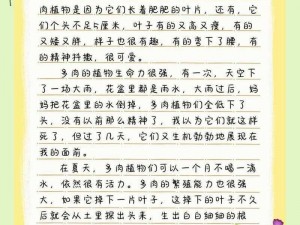 肉植物是因为它们长着肥肥的叶片,还有,它
们个头不足5厘米,叶子有的又高又瘦,有的
又矮又胖,样子也很有趣,有的弯下了腰,有
的精神抖擞,很可爱。
多肉的植物生命力很强,有一次,天空下
了一场大雨,花盆里都是雨水,大雨过后,妈
妈把花盆里的水倒掉,多肉植物们全低下了
头,没有以前那么精神了,我以为它们就这样
死了,但过了几天,它们又生机勃勃地展现在
我的面前。
在夏天,多肉植物们可以一个月不喝一滴
水,依然很有活力。多肉的繁殖能力也很强
大,如果它掉下一片叶子,这掉下的叶子不久
后就会从土里探出头来,生出白白细细的根